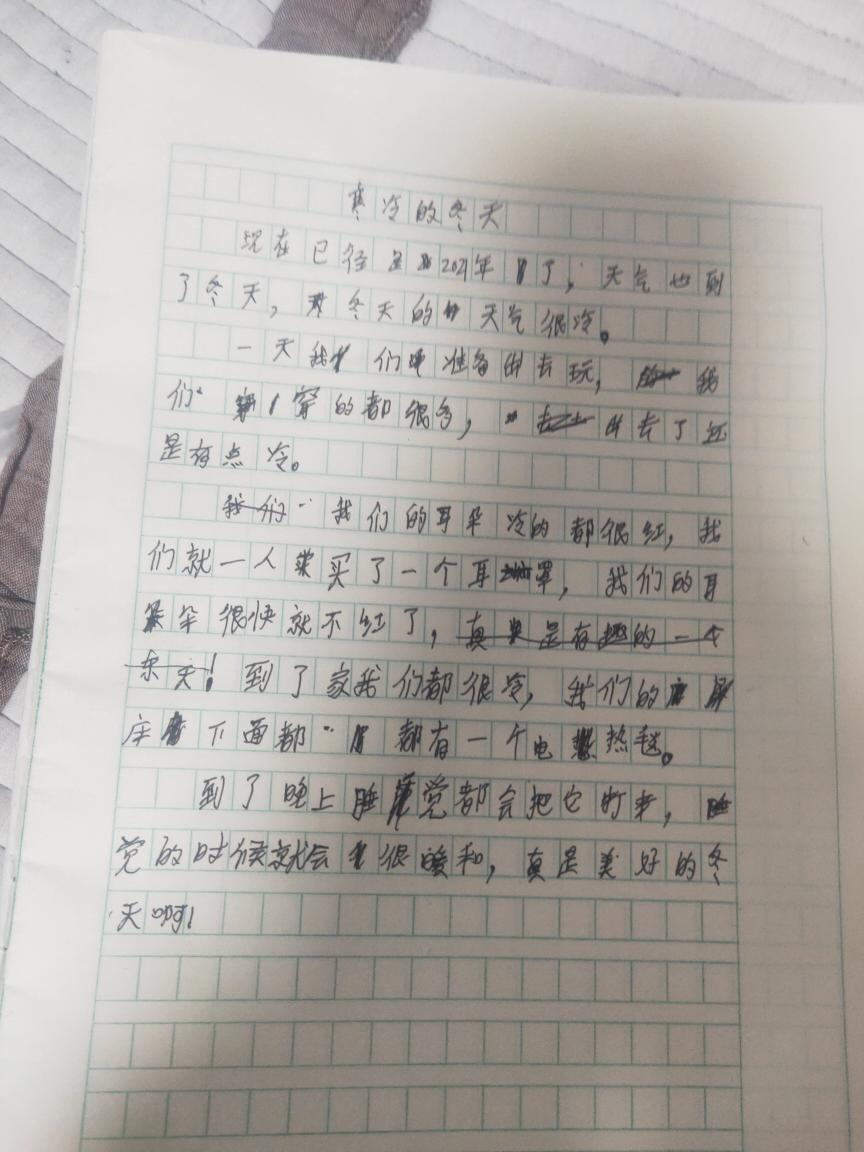 寒冷的冬天
现在已径是2021年了，天气也到
了冬天，冬天的天气很冷。
一天我们准备出去玩，我
们穿的都很多，出去了还
是有点冷。
我们我们的耳朵冷的都很红，我
们就一人买了一个耳罩，我们的耳
朵很快就不红了，真是有趣的一个
冬天！到了家我们都很冷，我们的
床下面都都有一个电热毯。
到了晚上睡觉都会把它打开，睡
觉的时候就会很暖和，真是美好的冬
天啊！